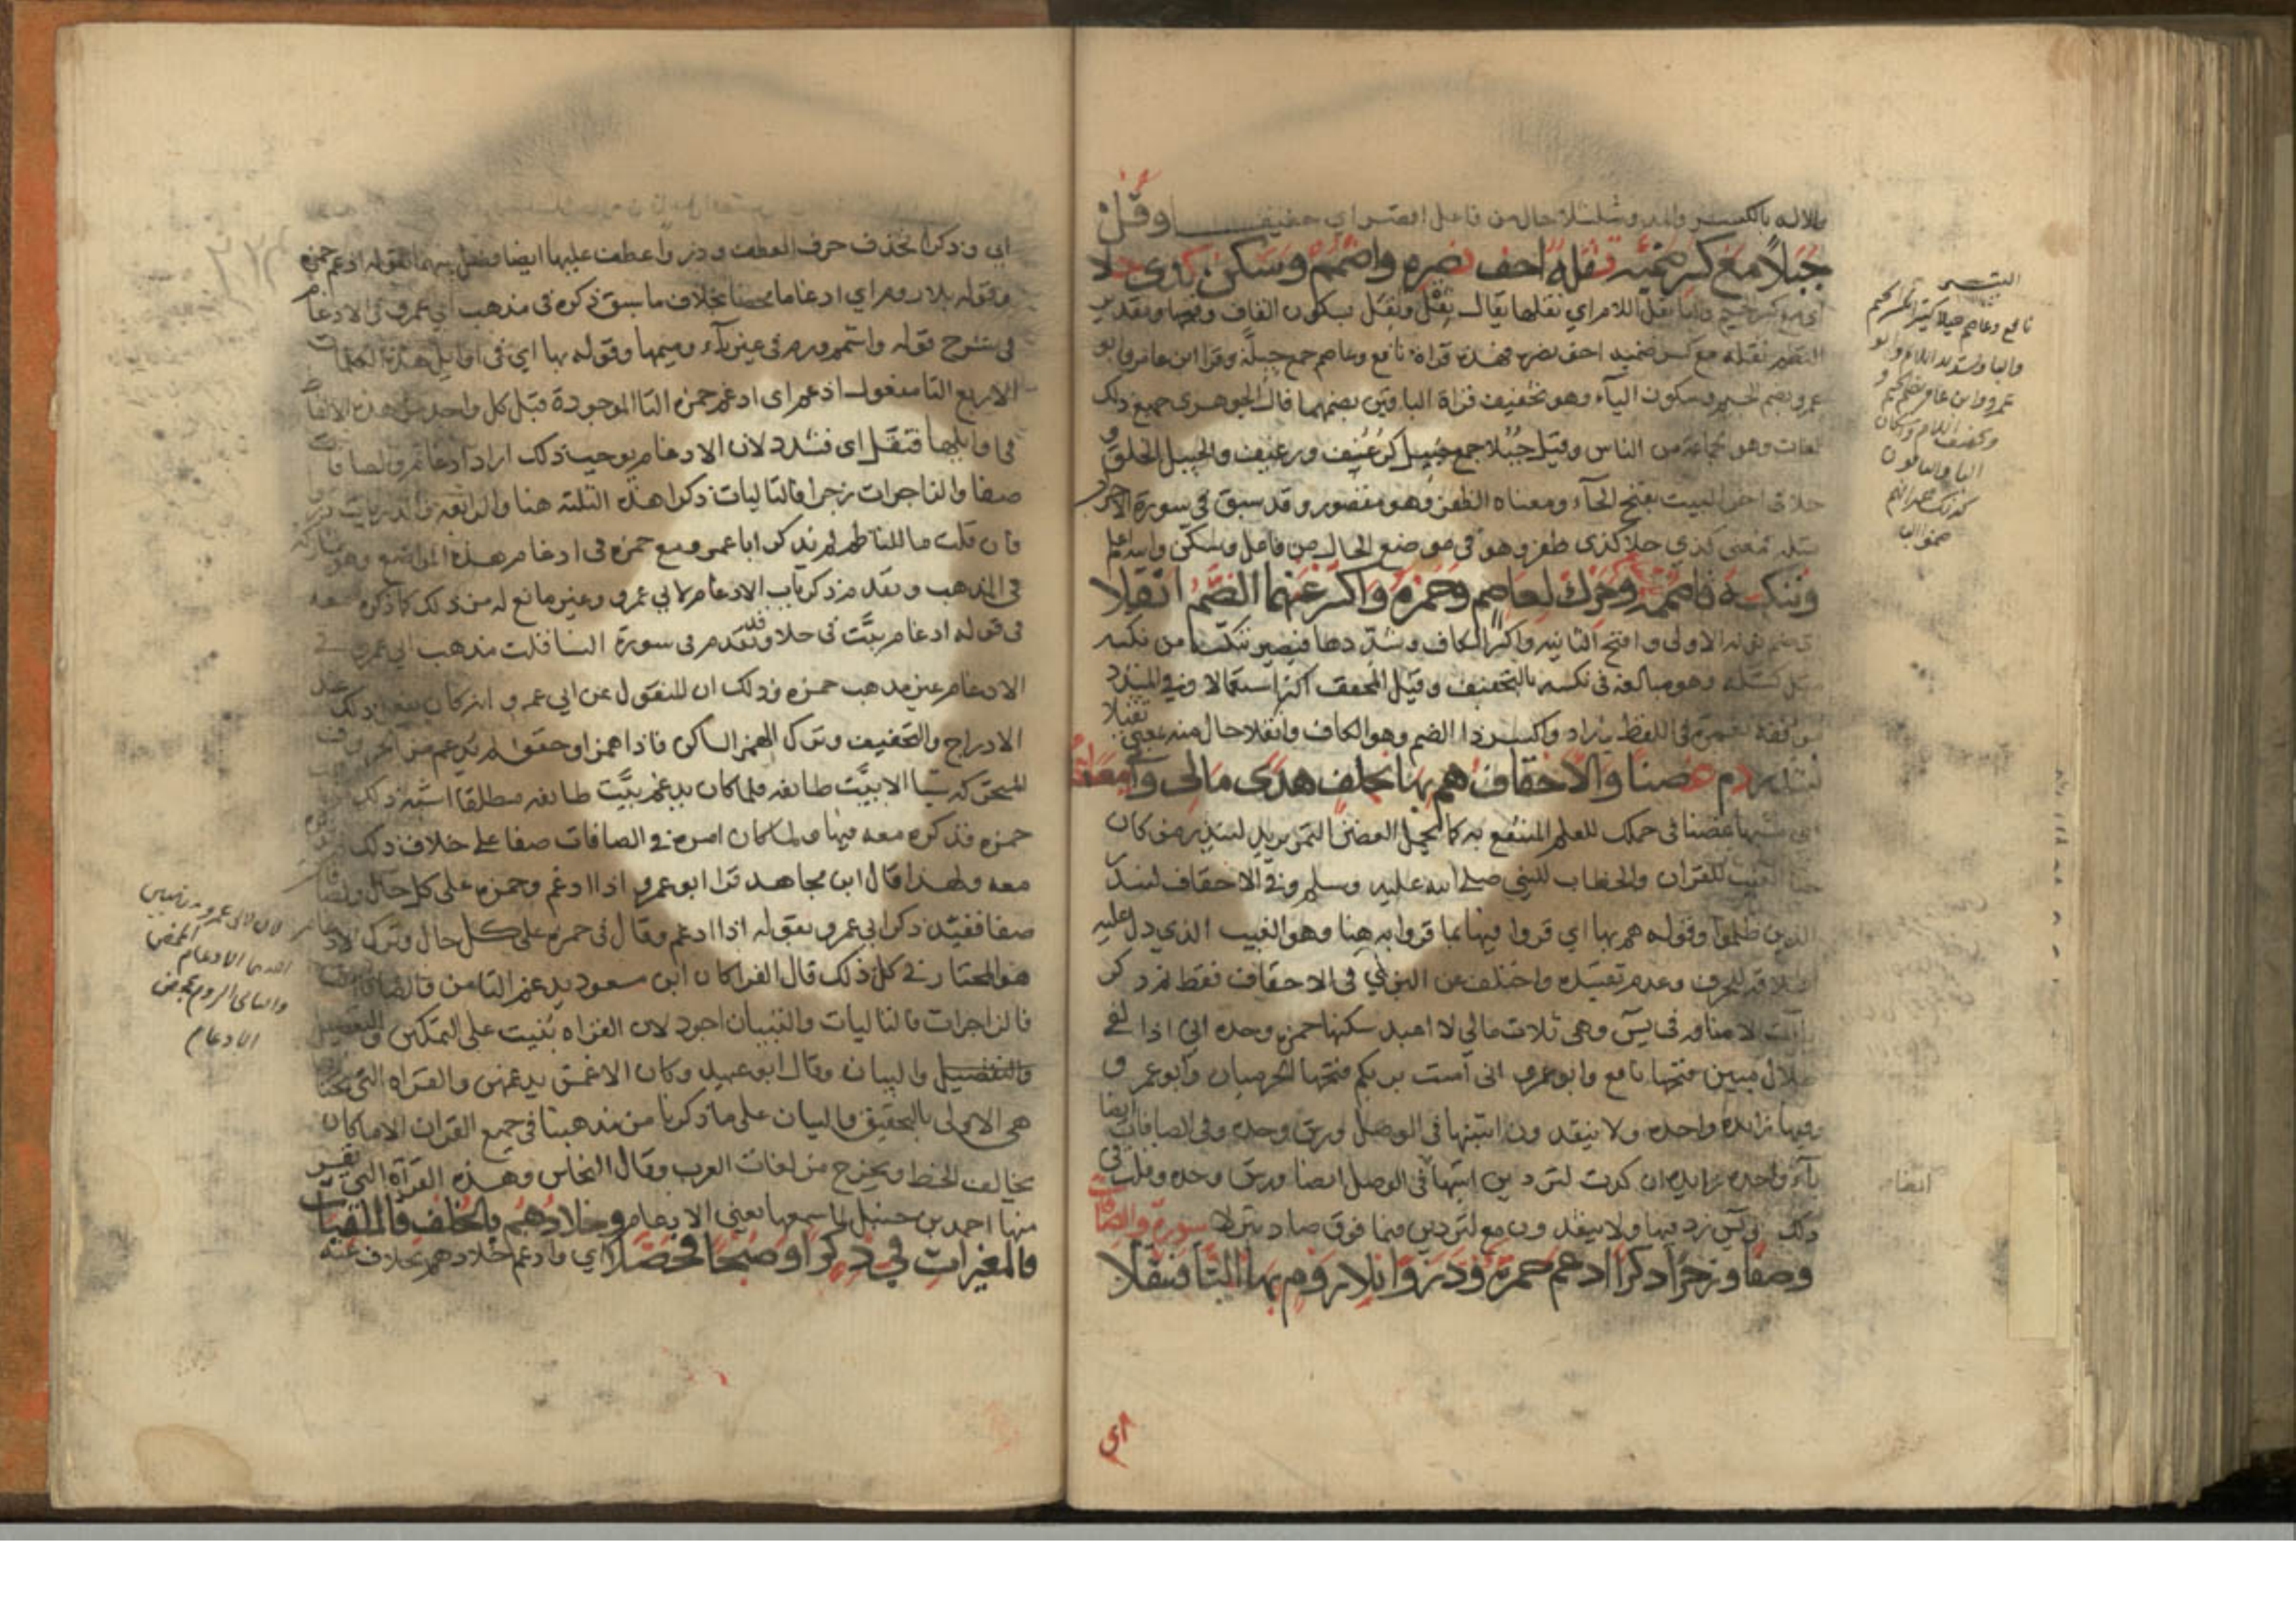 والاله بالكسر والمد وشلشلا حال من فاعل اقصر اي خفيفا وقل
جُبُلاً مع كسر ضميه ثقله اخف نصره واضمم وسكن كذى حلا
اي مع كسر ضميه واما ثقل اللام اي ثقلها يقال ثِقْل وثِقَل بسكون القاف وفتحها وتقدير
النظم ثقله مع كسر ضميه اخف نصره فهذه قراة نافع وعاصم جمع جبلة وقرا ابن عامر وابو
عمرو بضم الجيم وسكون الباء وهو تخفيف قراة الباقين بضمهما قال الجوهري جميع ذلك
لغات وهو جماعة من الناس وقيل جُبُلا جمع جبيل كرُغُيف ورغيف والجبيل الخلق و
حلا في اخر البيت بفتح الحاء ومعناه الظفر وهو مقصور وقد سبق في سورة الاحزاب
مثله فمعنى كذي حلا كذي ظفر وهو في موضع الحال من فاعل وسكن والله اعلم
وننكسه فاضممه وحرك لعاصم وحمزة واكسر عنهما الضم اثقلا
اي ضم نونه الاولى وافتح الثانيه واكسر الكاف وشدّدها فيصير ننكّسه من نكسه
مثل كسّله وهو مبالغة في نكسه بالتخفيف وقيل المخفف اكثر استعمالا وفي المشدد
موافقة لنعمره في اللفظ واكسر ذا الضم وهو الكاف واثقلا حال منه بمعنى ثقيلا
لينذر دم غصنا والاحقاف هم بها بخلف هدى مالي واني معا
اي مشبها غصنا في حملك للعلم المنتفع به كما يحمل الغصن الثمر يريد لينذر من كان
حيا الغيب للقران والخطاب للنبي صلى الله عليه وسلم وفي الاحقاف لينذر
الذين ظلموا وقوله هم بها اي قروا فيها بما قروا به هنا وهو الغيب الذي دل عليه
اطلاقه للحرف وعدم تقييده واختلف عن البزي في الاحقاف فقط ثم ذكر
يآت الاضافه في يس وهي ثلاث مالي لا اعبد سكنها حمزه وحده اني اذا لفي
ضلال مبين فتحها نافع وابو عمرو اني آمنت بربكم فتحها الحرميان وابو عمرو
وفيها زايدة واحده ولا ينقذون اثبتها في الوصل ورش وحده وفي الصافات ايضا
ياء واحده زايده ان كدت لتردين اثبتها في الوصل ايضا ورش وحده وقلت في
ذلك وفي يس زد فيها ولا ينقذون مع لتردين فيما فوق صاد تنزلا سورة والصافات
وصفا وزجرا ذكرا ادغم حمزة وذروا بلا روم بها التا فثقلا
اي
التيسير
نافع وعاصم جبلا كثيرا بكسر الجيم
والبا وتشديد اللام وابو
عمرو وابن عامر بضم الجيم و
تخفيف اللام واسكان
البا والباقون
كذلك غير انهم
ضموا البا
ايضا
ابي وزد كرا بحذف حرف العطف وذروا عطف عليها ايضا وفصل بينهما بقوله ادغم حمزه
وقوله بلا روم اي ادغاما محضا بخلاف ما سبق ذكره في مذهب ابي عمرو في الادغام
في شرح قوله واشمم ورم في غير باء وميمها وقوله بها اي في اوايل هذه الكلمات
الاربع التا مفعول ادغم اى ادغم حمزه التا الموجودة قبل كل واحد من هذه الالفاظ
في اوايلها فثقل اى فشدد لان الادغام يوجب ذلك اراد ادغام والصافات
صفا والزاجرات زجرا فالتاليات ذكرا هذه الثلثه هنا والرابعه والذاريات ذروا
فان قلت ما للناظم لم يذكر ابا عمرو مع حمزه في ادغام هذه المواضع وهو مشاركه
في المذهب وبعد من ذكر باب الادغام لابي عمرو وغير مانع له من ذلك كما ذكره معه
في قوله ادغام بيّت في حلا وقد تقدم في سورة النسا قلت مذهب ابي عمرو في
الادغام غير مذهب حمزه وذلك ان المنقول عن ابي عمرو انه كان يفعل ذلك عند
الادراج والتخفيف وترك الهمز الساكن فاذا همز او حقق لم يدغم من الحروف
المتحركه شيا الا بيّت طايفه فلما كان يدغم بيّت طايفه مطلقا اشبه ذلك
حمزه فذكره معه فيها ولما كان امره في الصافات صفا على خلاف ذلك لم يذكره
معه ولهذا قال ابن مجاهد قرا ابو عمرو اذا ادغم وحمزه على كل حال والصافات
صفا فقيّد ذكر ابي عمرو بقوله اذا ادغم وقال في حمزه على كل حال وترك الادغام
هو المختار في كل ذلك قال الفرا كان ابن مسعود يدغم التا من والصافات
فالزاجرات فالتاليات والتبيان اجود لان القراه بُنيت على التمكين والتفصيل
والتفصيل والبيان وقال ابو عبيد وكان الاعمش يدغمهن والقراه التي نختار
هي الاولى بالتحقيق والبيان على ما ذكرنا من مذهبنا في جميع القران الا ما كان
يخالف الخط ويخرج من لغات العرب وقال النحاس وهذه القرآة التي نفر
منها احمد بن حنبل لما سمعها يعني الادغام وخلادهم بالخلف فالملقيات
فالمغيرات في ذكرا وصبحا فحصلا اي وادغم خلادهم بخلاف عنه
لان لابي عمرو مذهبين
احدهما الادغام المحض
والثاني الروم عوض
الادغام